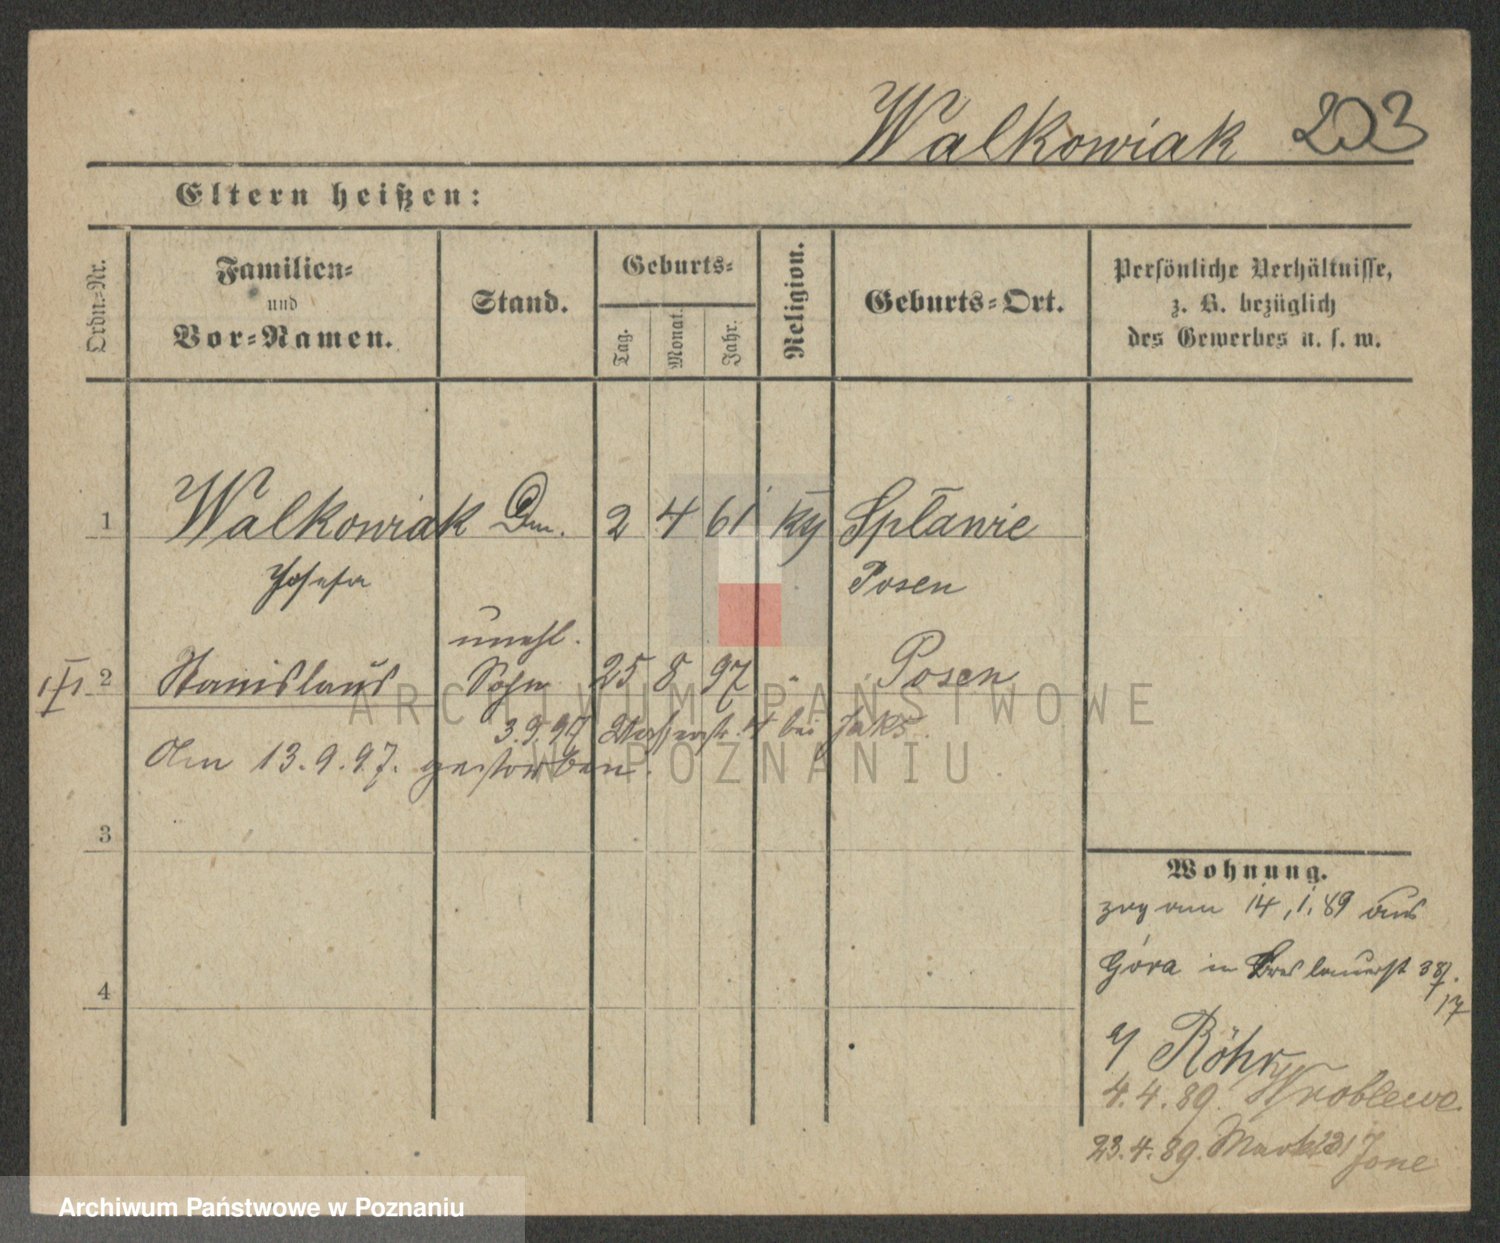 Walkowiak 203
Eltern heißen:
Ordn=Nr.
Familien=
und
Vor=Namen.
Stand.
Geburts=
Tag.
Monat.
Jahr.
Religion.
Geburts=Ort.
Persönliche Verhältnisse,
z. B. bezüglich
des Gewerbes u. s. w.
1 Walkowiak Dm. 2 4 61 Spławie
Josefa Posen
unehl.
2 Stanislaus Sohn 25 8 97 " Posen
3.9.97 4 bei
Am 13.9.97. gestorben.
3
4
Wohnung.
zog am 14.1.89 aus
Góra in Breslauerst 38/
17
b/ Röhr
4.4.89. Wroblewo
23.4.89.
ARCHIWUM PAŃSTWOWE
W POZNANIU
Archiwum Państwowe w Poznaniu